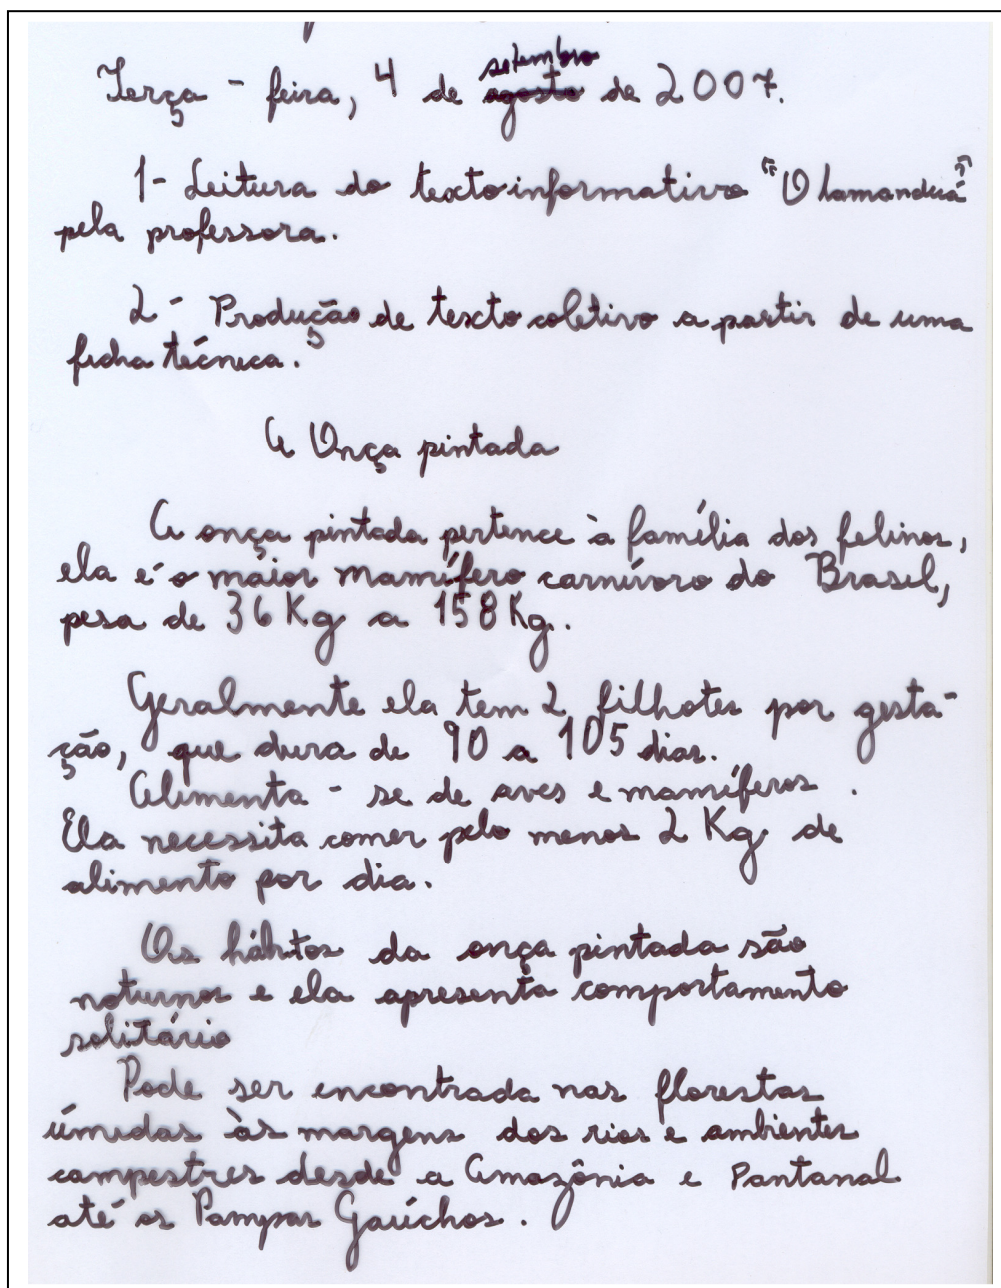 setembro
Terça - feira, 4 de agosto de 2007.
1- Leitura do texto informativo "O tamanduá"
pela professora.
2- Produção de texto coletivo a partir de uma
ficha técnica.
A Onça pintada
A onça pintada pertence à família dos felinos,
ela é o maior mamífero carnívoro do Brasil,
pesa de 36 Kg a 158 Kg.
Geralmente ela tem 2 filhotes por gesta-
ção, que dura de 90 a 105 dias.
Alimenta - se de aves e mamíferos.
Ela necessita comer pelo menos 2 Kg de
alimento por dia.
Os hábitos da onça pintada são
noturnos e ela apresenta comportamento
solitário
Pode ser encontrada nas florestas
úmidas às margens dos rios e ambientes
campestres desde a Amazônia e Pantanal
até os Pampas Gaúchos.